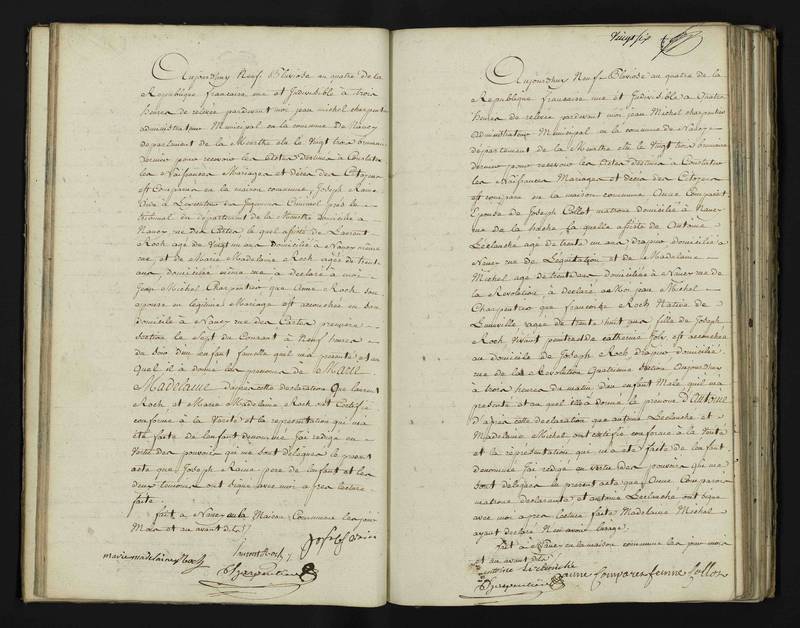 Aujourdhuy Neuf Pluviose an quatre de la
Republique francaise une et Indivisible à trois
heures de relevée pardevant moi jean michel charpentier
administrateur Municipal en la commune de Nancy
departement de la Meurthe élu le Vingt trois brumaire
dernier pour recevoir les Actes destinés à Constater
les Naissances Mariages et décès des Citoyens
est Comparu en la maison commune, Joseph
près le
tribunal du departement de la Meurthe domicilié à
Nancy rue des Cartes le quel assisté de Laurent
Roch age de Vingt un ans domicilié à Nancy même
rue et de Marie Madelaine Roch agée de trente
ans domiciliée même rue, a declaré à moi
Jean Michel Charpentier que Anne Roch son
epouse en légitime Mariage est accouchée en son
domicile à Nancy rue des Cartes premiere
Section le Sept du Courant à Neuf heures
du Soir d'un enfant femelle quil ma présenté et au
Quel il a donné les prenoms de Marie
Madelaine dapres cette declaration Que laurent
Roch, et Marie Madelaine Roch ont Certifié
conforme à la Verité et la représentation qui ma
été faite de lenfant denommé Jai redigé en
Vertu des pouvoirs qui me sont délégués le présent
acte que Joseph pere de lenfant et les
deux temoins ont signé avec moi apres lecture
faite
fait à Nancy en la Maison Commune les jour
Mois et an avant dits
Joseph
marie madelaine Roch
laurent Roch
Charpentier
Vingt six
Aujourdhuy Neuf Pluviose an quatre de la
Republique francaise une et Indivisible à Quatre
heures de relevée pardevant moi jean Michel charpentier
administrateur Municipal en la commune de Nancy
département de la Meurthe élu le Vingt trois brumaire
dernier pour recevoir les actes destinés à Constater
les Naissances Mariages et décès des Citoyens
est comparu en la maison commune Anne Comparet
Epouse de Joseph Collot matrone domiciliée à Nancy
rue de la hache la quelle assistée de Antoine
Leclanché age de trente un ans drapier domicilié à
Nancy rue de Léquitation et de Madelaine
Michel age de trente ans domiciliée à Nancy rue de
la Revolution, à déclaré à Moi jean Michel
Charpentier que francoise Roch Native de
Luneville agée de trente huit ans fille de Joseph
Roch Vivant peintre et de catherine est accouchée
au domicile de Joseph Roch drapier domicilié
rue de la Revolution Quatrieme Section Aujourdhuy
à trois heures du matin d'un enfant Male quil ma
présenté et au quel elle a donné le prénom d'Antoine
d'après cette declaration que antoine Leclanché et
Madelaine Michel, ont certifié conforme à la Verité
et la réprésentation qui m'a été faite de lenfant
denommé Jai redigé en vertu des pouvoirs qui me
sont délégués le présent acte que Anne Comparet
matrone déclarante et antoine Leclanché ont signé
avec moi apres lecture faite Madelaine Michel
ayant declaré N'en avoir l'usage
fait à Nancy en la maison commune les jour mois
et an avant dits
antoine Leclanché
Charpentier
anne Comparet femme Collot